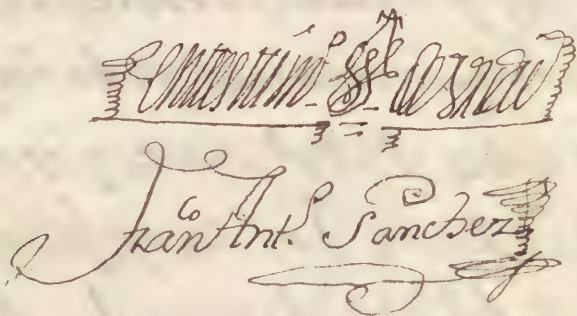 En testimº de verdad
Franᶜᵒ Ant.º Sanchez